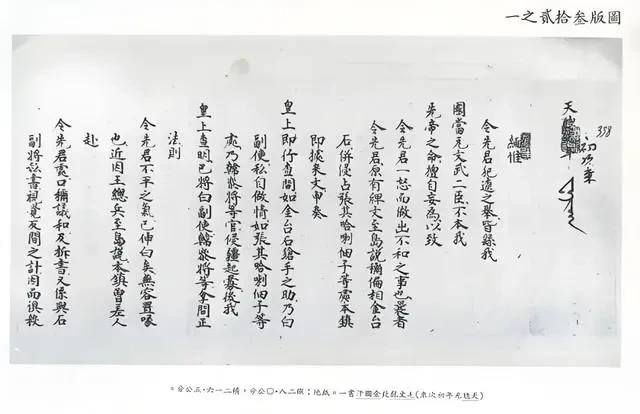 圖版叁拾貳之一
398
初次来
天
年
緬惟
令先君犯邊之舉皆緣我
國當冗文武二臣不本我
先帝之命擅自妄為以致
令先君一怒而做出不和之事也是者
令先君原有禆文至島說稱偏相金台
石併侵占張其哈喇佃子等處本鎮
即據來文申奏
皇上即行查問如金台石鎗手之助乃白
副使私自做情如張其哈喇佃子等
處乃韓將等官侵疆起釁後我
皇上查明已將白副使韓將等拿問正
法則
令先君不平之氣已伸白矣無容置喙
也近因王總兵至島說本鎮曾差人
赴
令先君處口稱議和及拆書又係與石
副將書視覺反間之計因而誤殺
(天聰元年初次來)毛文龍致金國汗書一。紙地；縱二八・〇公分，橫二一六・五公分。